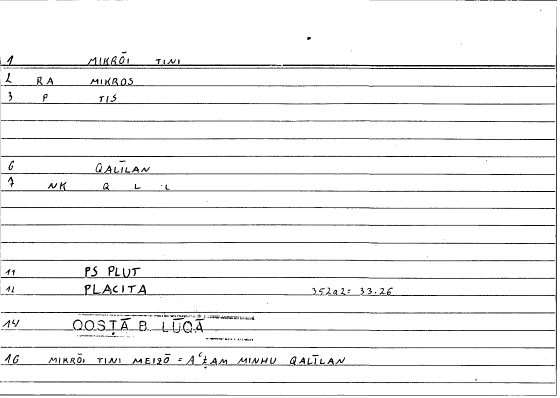 1 MIKRŌI TINI
2 RA MIKROS
3 P TIS
6 QALĪLAN
7 NK Q L L
11 PS PLUT
12 PLACITA 352a2 = 33.26
14 QOSṬĀ B. LŪQĀ
16 MIKRŌI TINI MEIZŌ = AʿẒAM MINHU QALĪLAN